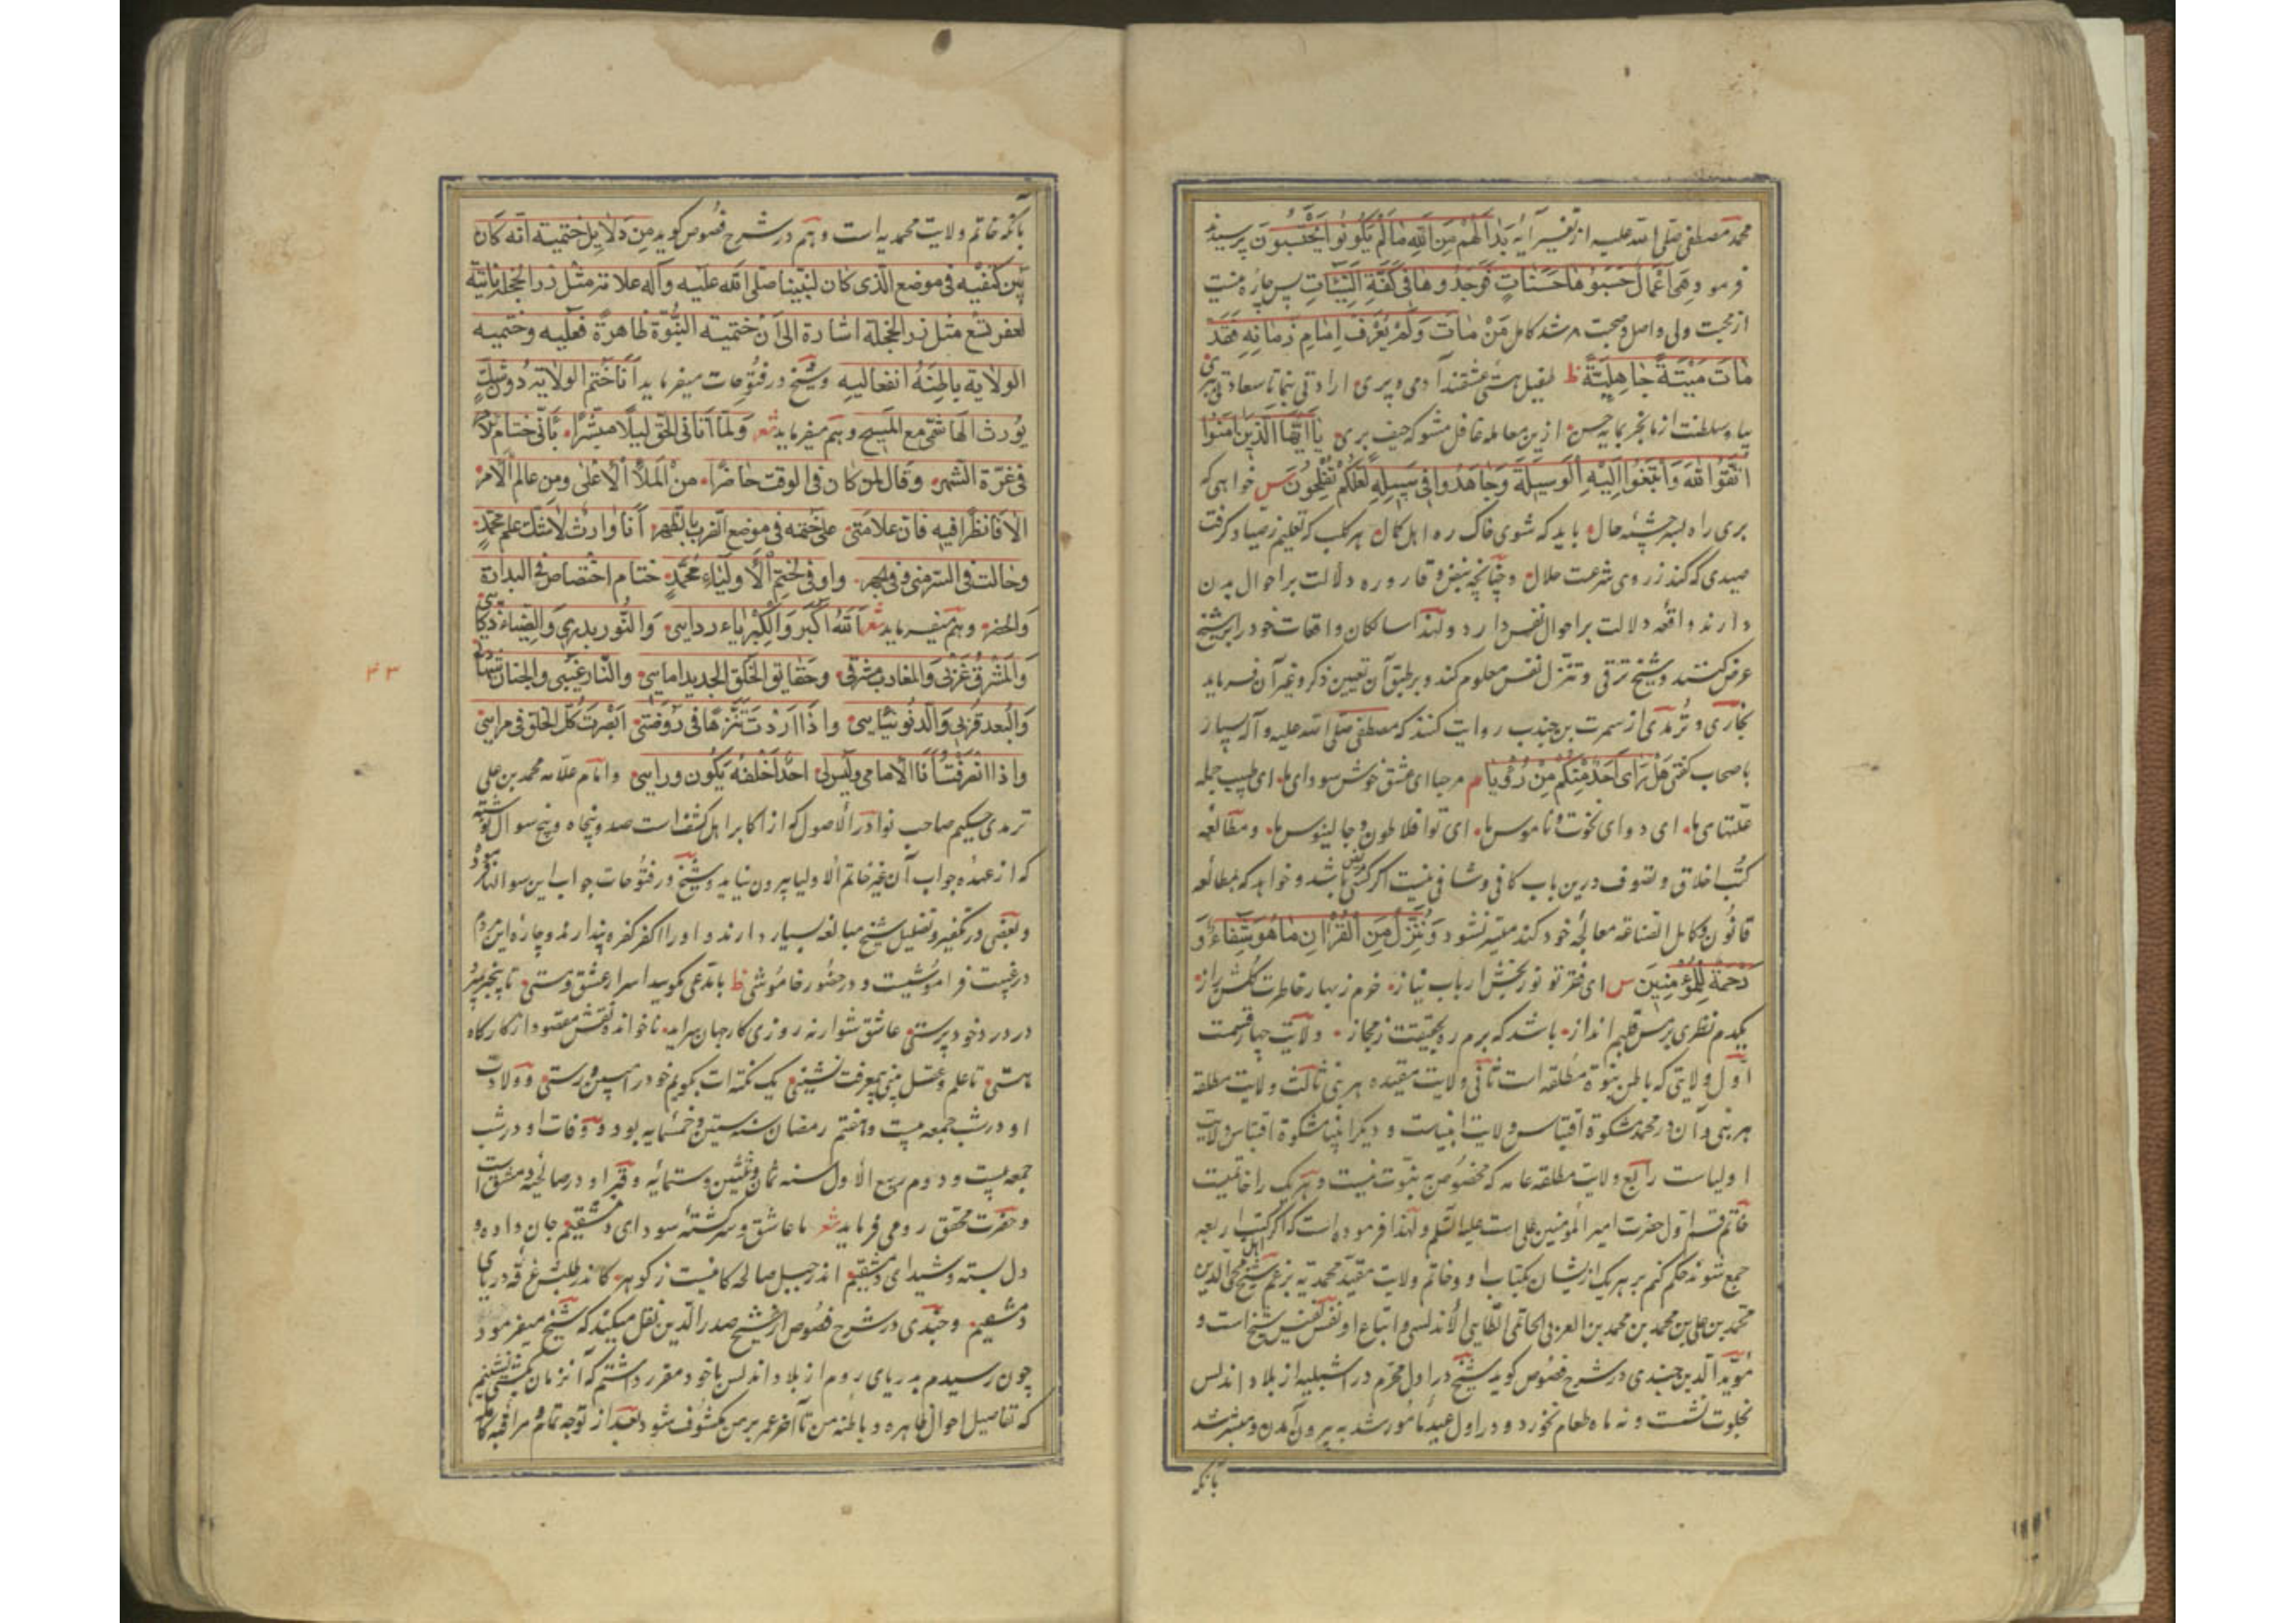 محمد مصطفی صلی الله علیه از تفسیر آیه بَدَا لَهُمْ مِنَ اللهِ مَا لَمْ یَکُونُوا یَحْتَسِبُونَ پرسیدند
فرمود هِیَ اَعْمَالٌ حَسَبُوهَا حَسَنَاتٍ فَوَجَدُوهَا فِی کَفَّةِ السَّیِّئَاتِ پس چاره نیست
از محبت ولی واصل و صحبت مرشد کامل مَنْ مَاتَ وَلَمْ یَعْرِفْ اِمَامَ زَمَانِهِ فَقَدْ
مَاتَ مَیْتَةً جَاهِلِیَّةً ظ طفیل هستی عشقند آدمی و پری ارادتی بنما تا سعادتی ببری
بیا و سلطنت از ما بخر بمایه حسن ازین معامله غافل مشو که حیف بری یَا اَیُّهَا الَّذِینَ اٰمَنُوا
اتَّقُوا اللهَ وَابْتَغُوا اِلَیْهِ الْوَسِیلَةَ وَجَاهَدُوا فِی سَبِیلِهِ لَعَلَّکُمْ تُفْلِحُونَ س خواهی که
بری راه بسرچشمه حال باید که شوی خاک ره اهل کمال هر کلب که تعلیم ز صیاد گرفت
صیدی که کند ز روی شرعست حلال و چنانچه نبض و قاروره دلالت بر احوال بدن
دارند واقعه دلالت بر احوال نفس دارد و لهذا سالکان واقعات خود را بر شیخ
عرض کنند و شیخ ترقی و تنزل نفس معلوم کند و بر طبق آن تعیین ذکر و غیر آن فرماید
بخاری و ترمدی از سمرت بن جندب روایت کنند که مصطفی صلی الله علیه و آله بسیار
با صحاب کفتی هَلْ رَاٰی اَحَدٌ مِنْکُمْ مِنْ رُؤْیَا م مرحبا ای عشق خوش سودای ما ای طبیب جمله
علتهای ما ای دوای نخوت و ناموس ما ای تو افلاطون و جالینوس ما و مطالعه
کتب اخلاق و تصوف درین باب کافی و شافی نیست اگر کسی مریض باشد و خواهد که بمطالعه
قانون و کامل الصناعه معالجه خود کند میسر نشود وَنُنَزِّلُ مِنَ الْقُرْاٰنِ مَا هُوَ شِفَاءٌ وَ
رَحْمَةٌ لِلْمُؤْمِنِینَ س ای فقر تو نور بخش ارباب نیاز خرم ز بهار خاطرت گلشن راز
یکدم نظری بر مس قلبم انداز باشد که برم ره بحقیقت ز مجاز و ولایت چهار قسمت
اول ولایتی که باطن نبوة مطلقه است ثانی ولایت مقیده هر نبی ثالث ولایت مطلقه
هر نبی و آن در محمد مشکوة اقتباس ولایت انبیاست و دیکر انبیا مشکوة اقتباس ولایت
اولیاست رابع ولایت مطلقه عامه که مخصوص به نبوت نیست و هر یک را خاتمیست
خاتم قسم اول حضرت امیر المؤمنین علی است علیه السلم و لهذا فرموده است که اگر کتب اربعه
جمع شوند حکم کنم بر هر یک از ایشان بکتاب او و خاتم ولایت مقیده محمدیه بزعم شیخ محی الدین
محمد بن علی بن محمد بن محمد بن العربی الحاتمی الطایی الاندلسی و اتباع او نفس نفیس شیخ است و
مؤید الدین جندی در شرح فصوص کوید شیخ در اول محرم در اشبیلیه از بلاد اندلس
بخلوت نشست و نه ماه طعام نخورد و در اول عید مأمور شد به بیرون آمدن و مبشر شد
بانکه
بانکه خاتم ولایت محمدیه است و هم در شرح فصوص کوید مِن دَلاٰیِل ختمیته انه کان
بین کتفیه فی موضع الذی کان لنبینا صلی الله علیه وآله علامة مثل زر الحجلة ناتیة
لعفر تسع مثل زر الحجلة اشارة الی ان ختمیته النبوة ظاهرة فعلیه وختمیه
الولایة باطنه انفعالیه و شیخ در فتوحات میفرماید اَنَا خَتْمُ الولایة دون شك
یورث الهاشمی مع المسیح و هم میفرماید شعر وَلَمَّا اَتَانِی الحق لیلًا مبشرًا بانی ختام الامر
فی غرة الشهر وقال لمن کان فی الوقت حاضرًا من الملأ الاعلی ومن عالم الامر
الا فانظرا فیه فان علامتی علی ختمه فی موضع الضرب بالظهر انا وارث لا شك علم محمد
وحالته فی السر منی وفی الجهر وانی لختم الاولیاء محمد ختام اختصاص فی البداوة
والحضر و هم میفرماید شعر اَللهُ اَکْبَر وَالْکِبْرِیَاء ردایی وَالنُّور بدری وَالضیاء ذکایی
وَالمشرق غربی والمغارب مشرقی وحقایق الخلق الجدید امامی والنار غیبی والجنان شهادتی
وَالبعد قربی وَالدنو تنایی واذا اردت تنزهًا فی روضتی ابصرت کل الخلق فی مرایی
واذا انصرفت انا الامام ولیس لی احد اخلفه یکون ورایی و امام علامه محمد بن علی
ترمدی حکیم صاحب نوادر الاصول که از اکابر اهل کشف است صد و پنجاه و پنج سوال نوشته
که از عهده جواب آن غیر خاتم الاولیا بیرون نیاید و شیخ در فتوحات جواب این سوالها فرموده
و بعضی در تکفیر و تضلیل شیخ مبالغه بسیار دارند و او را اکفر کفره پندارند و چاره این مردم
در غیبت فراموشیست و در حضور خاموشی ظ با مدعی مکویید اسرار عشق و مستی تا بیخبر بمیرد
در درد خود پرستی عاشق شو ار نه روزی کار جهان سراید ناخوانده نقش مقصود از کارگاه
هستی تا علم و عقل بینی بی معرفت نشینی یک نکته ات بکویم خود را مبین و رستی و ولادت
او در شب جمعه بیست و هفتم رمضان سنه ستین و خمسمایه بود و وفات او در شب
جمعه بیست و دوم ربیع الاول سنه ثمان و ثلثین و ستمائه و قبر او در صالحیه دمشق است
و حضرت محقق رومی فرماید شعر ما عاشق و سرگشته سودای دمشقیم جان داده و
دل بسته و شیدای دمشقیم اندر جبل صالحه کانیست ز کوهر کاندر طلبش غرقه دریای
دمشقیم و جندی در شرح فصوص از شیخ صدر الدین نقل میکند که شیخ میفرمود
چون رسیدم بدریای روم از بلاد اندلس با خود مقرر داشتم که آنزمان بکشتی نشینم
که تفاصیل احوال ظاهره و باطنه من تا آخر عمر بر من مکشوف شود بعد از توجه تام و مراقبه کامله
۴۳